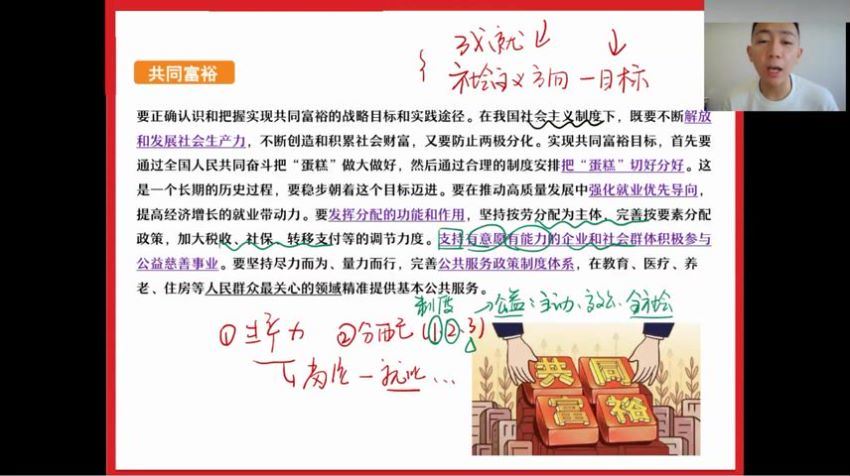 成就↓ ↓
社会主义方向一目标
共同富裕
要正确认识和把握实现共同富裕的战略目标和实践途径。在我国社会主义制度下，既要不断解放
和发展社会生产力，不断创造和积累社会财富，又要防止两极分化。实现共同富裕目标，首先要
通过全国人民共同奋斗把“蛋糕”做大做好，然后通过合理的制度安排把“蛋糕”切好分好。这
是一个长期的历史过程，要稳步朝着这个目标迈进。要在推动高质量发展中强化就业优先导向，
提高经济增长的就业带动力。要发挥分配的功能和作用，坚持按劳分配为主体，完善按要素分配
政策，加大税收、社保、转移支付等的调节力度。支持有意愿有能力的企业和社会群体积极参与
公益慈善事业。要坚持尽力而为、量力而行，完善公共服务政策制度体系，在教育、医疗、养
老、住房等人民群众最关心的领域精准提供基本公共服务。
制度 →公益：主动、 全社会
①生产力 ②分配(1 2 3)
高质一就业…
共同
富裕